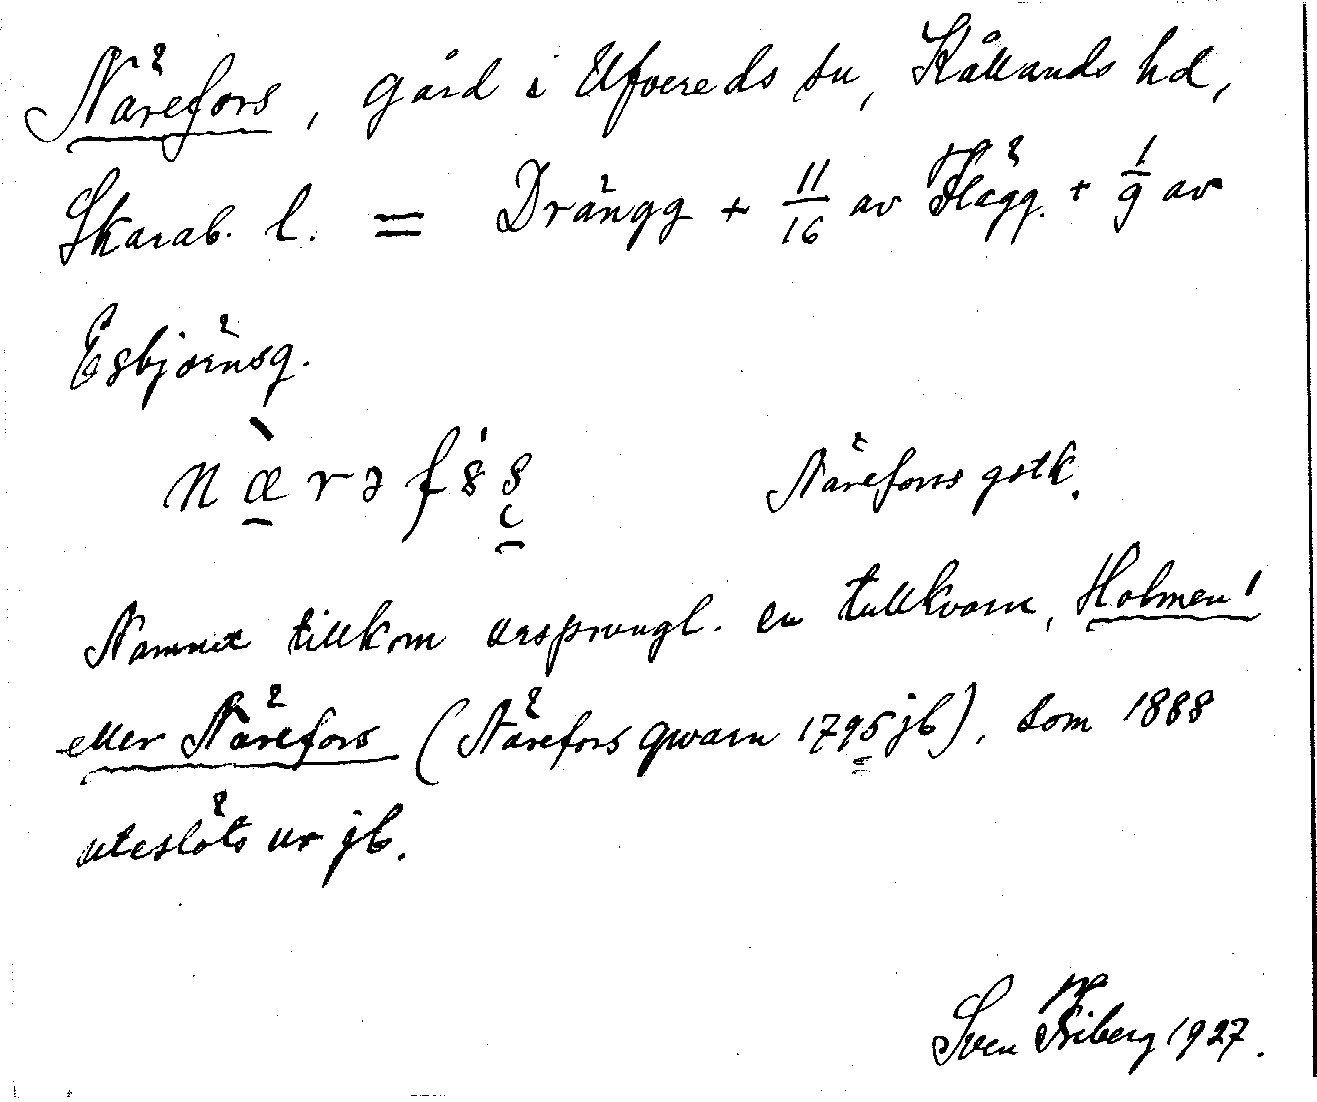 Närefors, gård i Ulfvereds sn, Kållands hd,
Skarab. l. = Drängg + 11/16 av Hägg. + 1/9 av
Esbjörnsg.
Närefors gstk.
Namnet tillkom ursprungl. en tullkvarn, Holmen
eller Närefors (Närefors qwarn 1795 jb), som 1888
uteslöts ur jb.
Sven Friberg 1927.